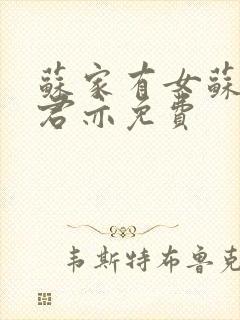 蘇家有女蘇
君亦免費
韦斯特布鲁克